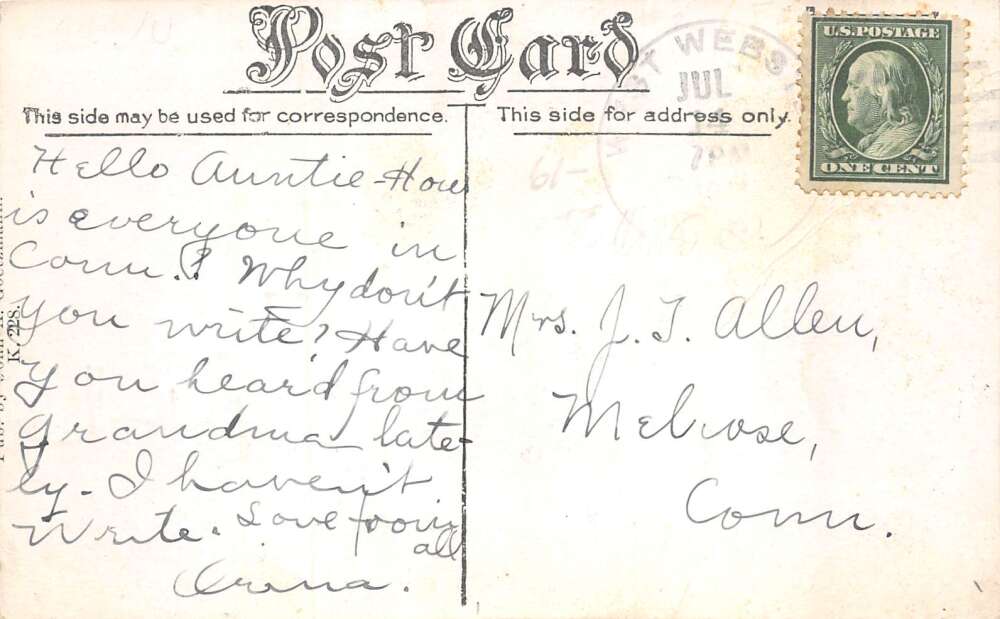 Post Card
This side may be used for correspondence.
This side for address only.
WEST WEBS
JUL
14
U.S. POSTAGE
ONE CENT
Hello Auntie-How
is everyone in
Conn.? Why don't
you write? Have
you heard from
Grandma late-
ly- I haven't.
Write. Love from
all
Mrs. J. T. Allen,
Melrose,
Conn.
K. 228.